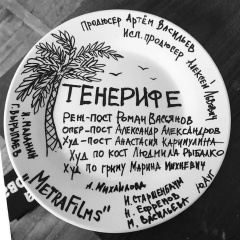 Продюсер Артём Васильев
Исп. продюсер Алексей
ТЕНЕРИФЕ
Реж-пост Роман Васьянов
Опер-пост Александр Александров
Худ-пост Анастасия Каримулина
Худ по кост Людмила Рыбалко
Худ по гриму Марина
А. Михайлова
И. Старшенбаум
Н. Ефремов
М. Васильева
"MetraFilms"